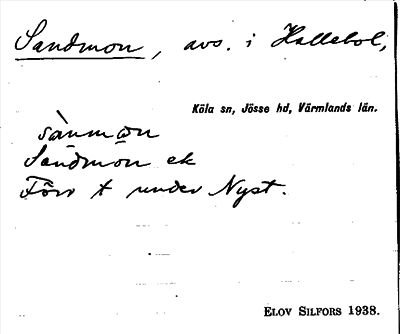 Sandmon, avs. i Hallebol,
Köla sn, Jösse hd, Värmlands län.
sànmo̱n
Sandmon ek
Förr t under Nyst.
ELOV SILFORS 1938.